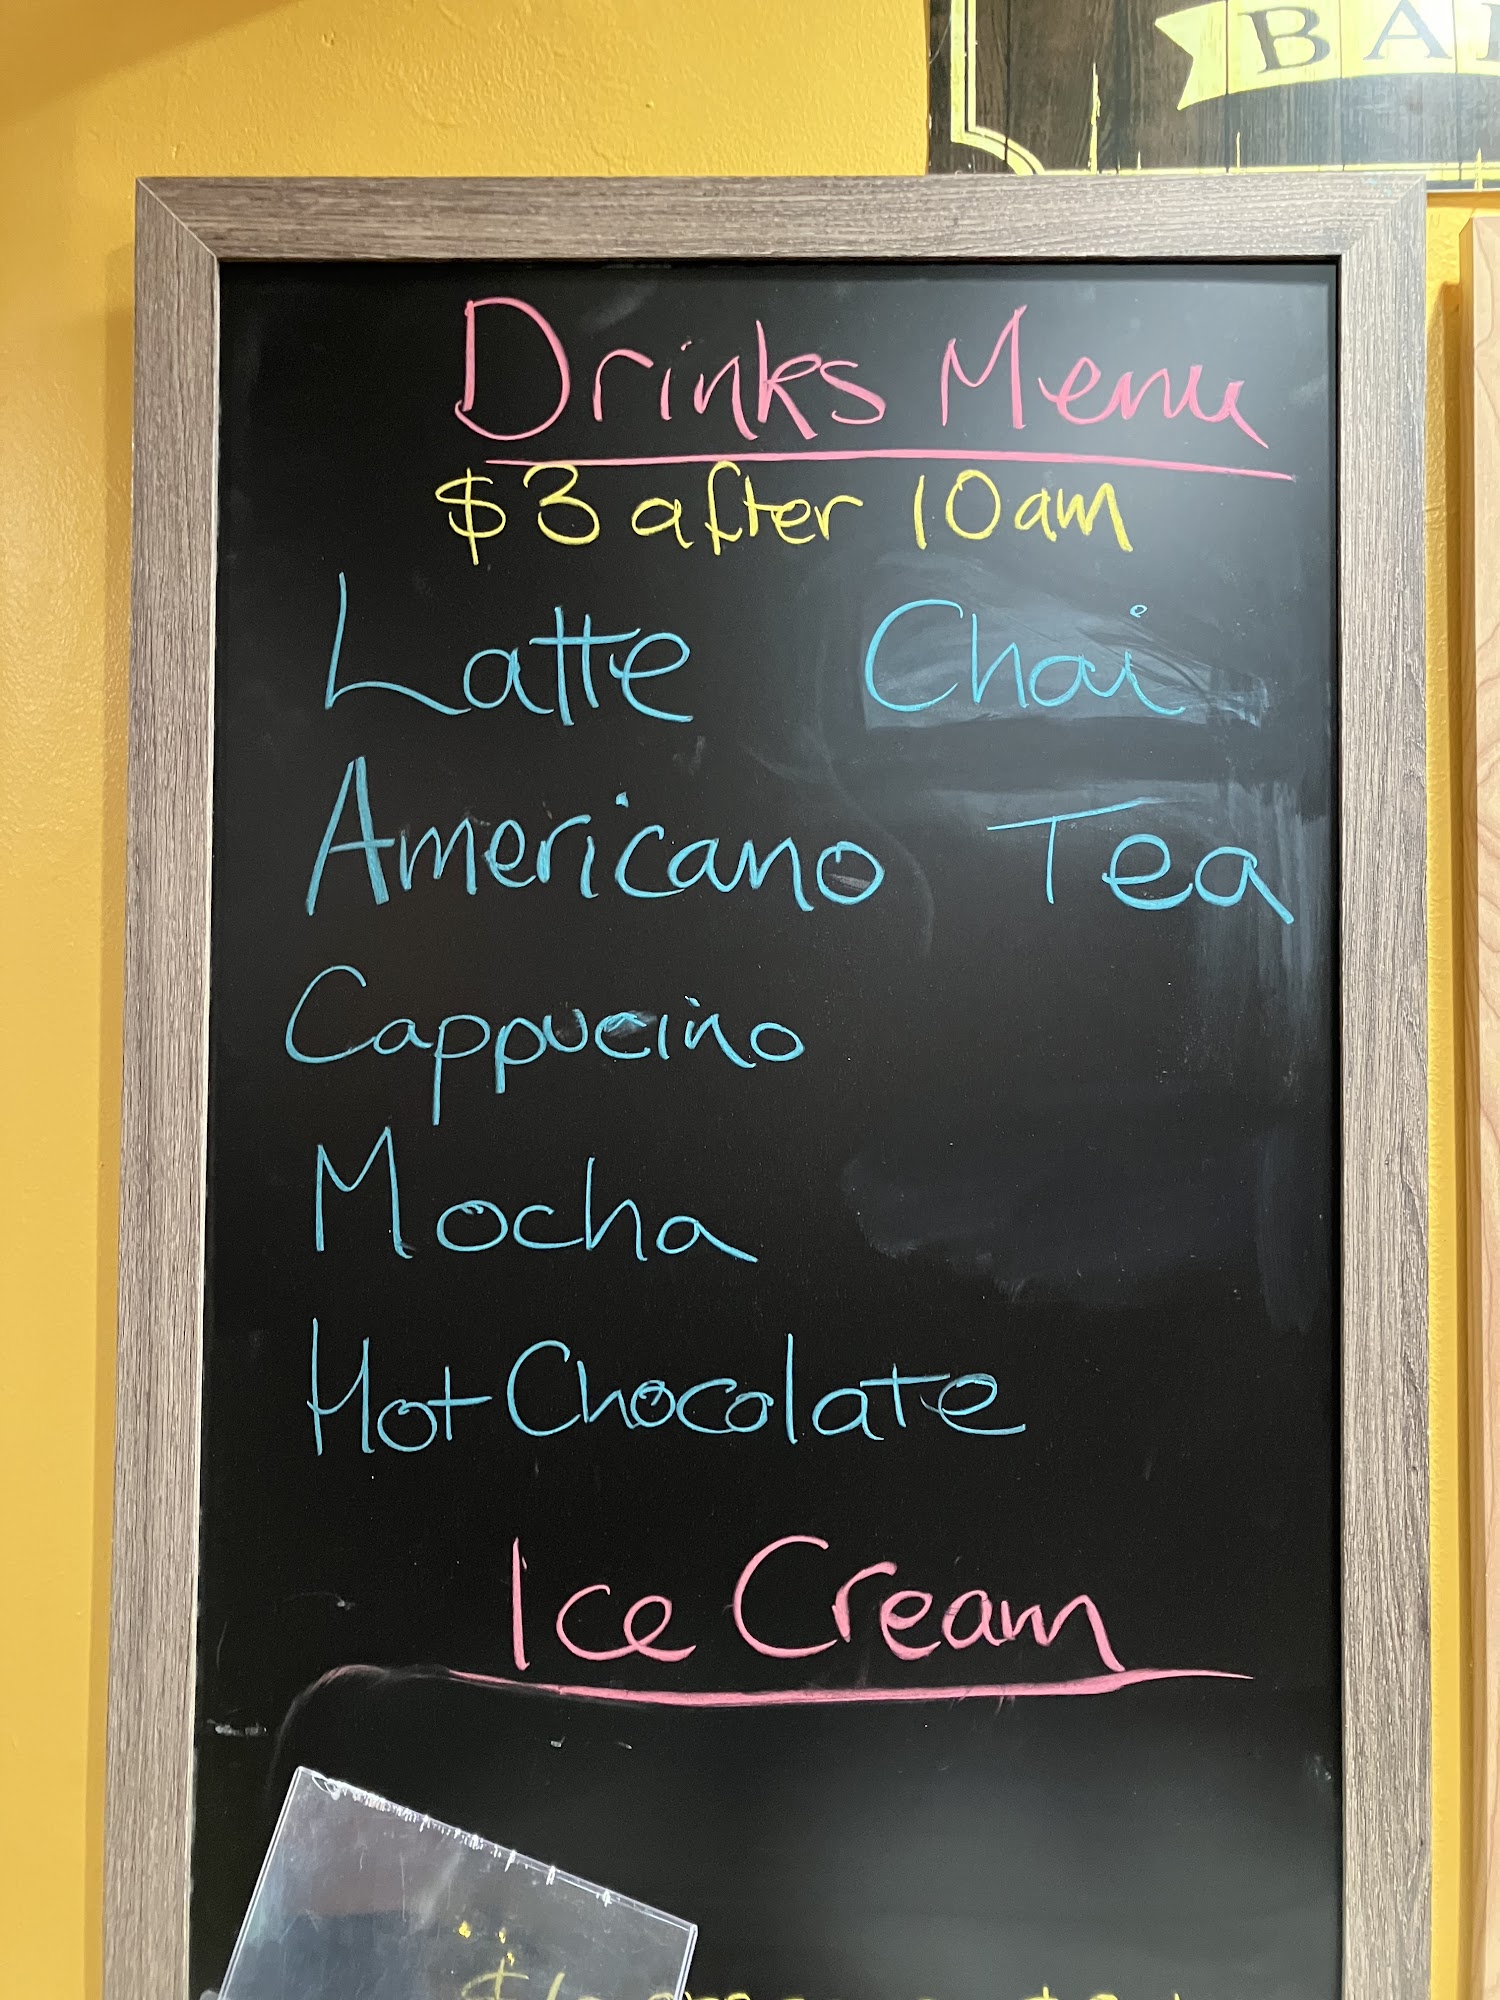 BA
Drinks Menu
$3 after 10am
Latte Chai
Americano Tea
Cappucino
Mocha
Hot Chocolate
Ice Cream